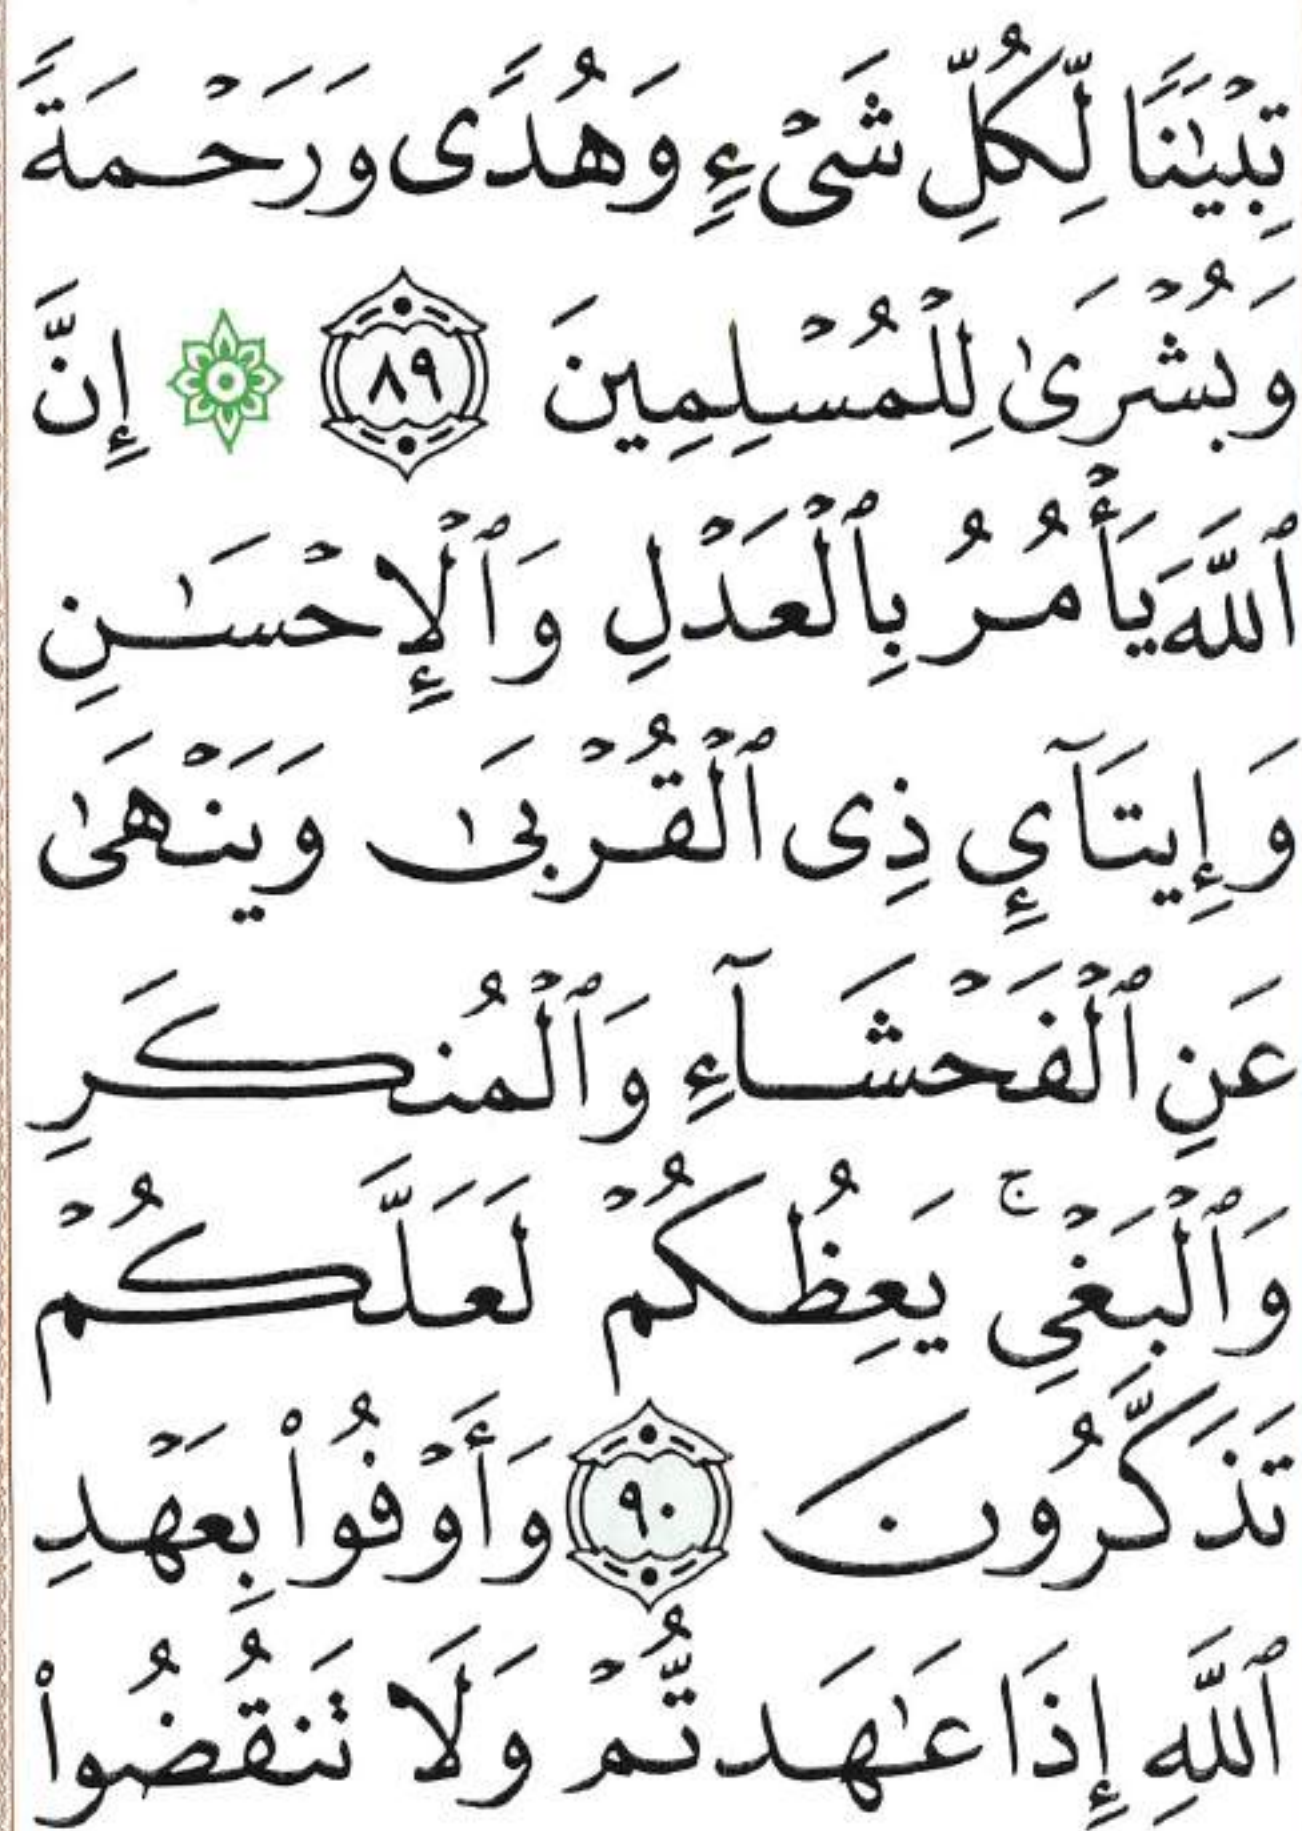 تِبْيَٰنًا لِّكُلِّ شَىْءٍ وَهُدًى وَرَحْمَةً
وَبُشْرَىٰ لِلْمُسْلِمِينَ ٨٩ ۞ إِنَّ
ٱللَّهَ يَأْمُرُ بِٱلْعَدْلِ وَٱلْإِحْسَٰنِ
وَإِيتَآئِ ذِى ٱلْقُرْبَىٰ وَيَنْهَىٰ
عَنِ ٱلْفَحْشَآءِ وَٱلْمُنكَرِ
وَٱلْبَغْىِ ۚ يَعِظُكُمْ لَعَلَّكُمْ
تَذَكَّرُونَ ٩٠ وَأَوْفُوا۟ بِعَهْدِ
ٱللَّهِ إِذَا عَٰهَدتُّمْ وَلَا تَنقُضُوا۟